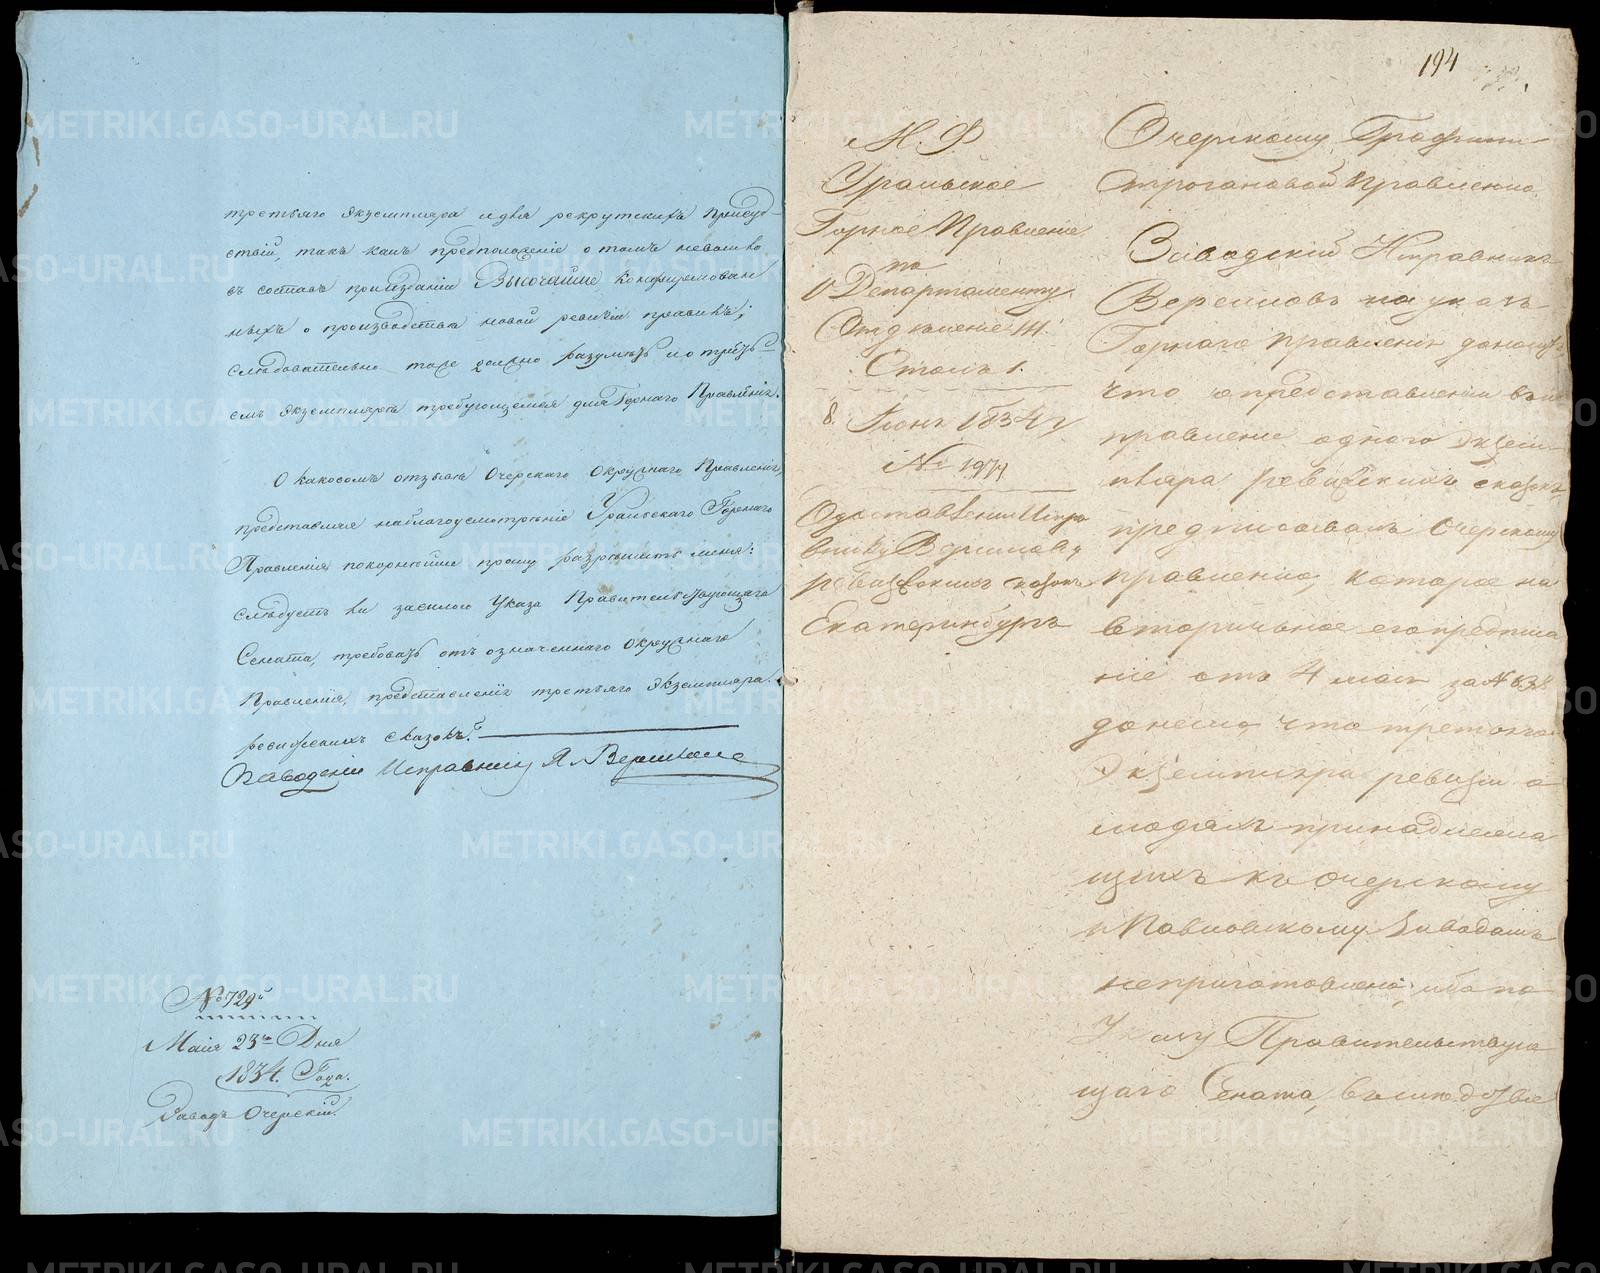 третьяго экземпляра и для рекрутскихъ присуд-
ствій, такъ какъ предположеніе о томъ не вошло
въ составъ при изданіи Высочайше конфирмован
ныхъ о производствѣ новой ревизіи правилъ;
слѣдовательно тоже должно разумѣть и о треть-
емъ экземплярѣ требующемся для Горнаго Правленія.
О каковомъ отзывѣ Очерскаго Окружнаго Правленія,
представляя на благоусмотрѣніе Уральскаго Горнаго
Правленія покорнѣйше прошу разрѣшить меня:
слѣдуетъ ли за силою Указа Правительствующаго
Сената, требовать отъ означеннаго Окружнаго
Правленія, представленія третьяго экземпляра
ревизскихъ сказокъ?
Заводскій Исправникъ Вершиловъ
№ 729й
Маія 23го Дня
1834. Года.
Заводъ Очерскій.
194
М. Ф.
Уральское
Горное Правленіе
по
V Департаменту
Отдѣленіе III.
Столъ 1.
8. Іюня 1834 г
№ 1974
О доставленіи Испра
внику Вершилову
ревизскихъ сказокъ
Екатеринбургъ
Очерскому Графини
Строгановой Правленію
Заводскій Исправникъ
Вершиловъ на указъ
Горнаго Правленія доноситъ,
что о представленіи въ сіе
правленіе одного экзем-
пляра ревизскихъ сказокъ,
предписывалъ Очерскому
правленію, которое на
вторичьное его предписа
ніе отъ 4 маія за №
донесло, что третьяго
Экземпляра ревизіи о
людяхъ принадлежа
щихъ къ Очерскому
и Павловскому Заводамъ
неприготовлено, ибо по
Указу Правительствую
щаго Сената, въ слѣдствіе